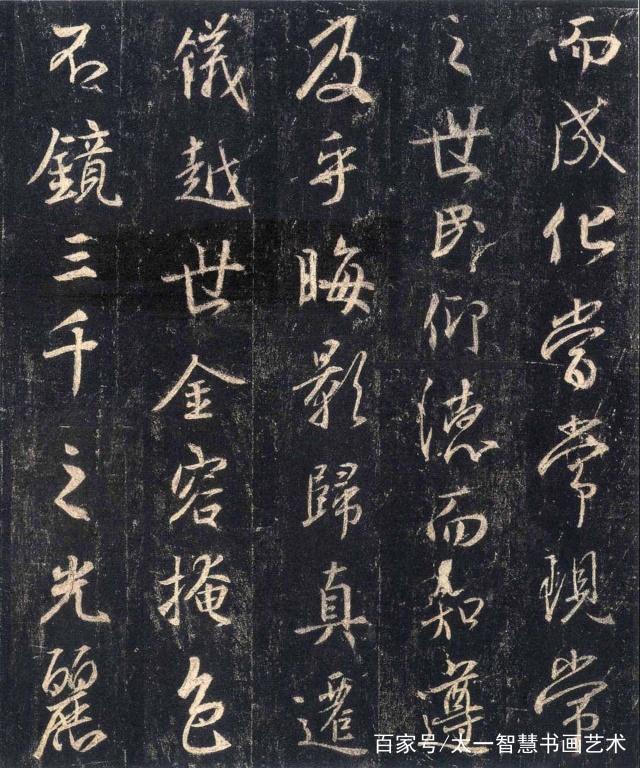 而成化當常現常
之世民仰德而知遵
及乎晦影歸真遷
儀越世金容掩色
不鏡三千之光麗
百家号/太一智慧书画艺术